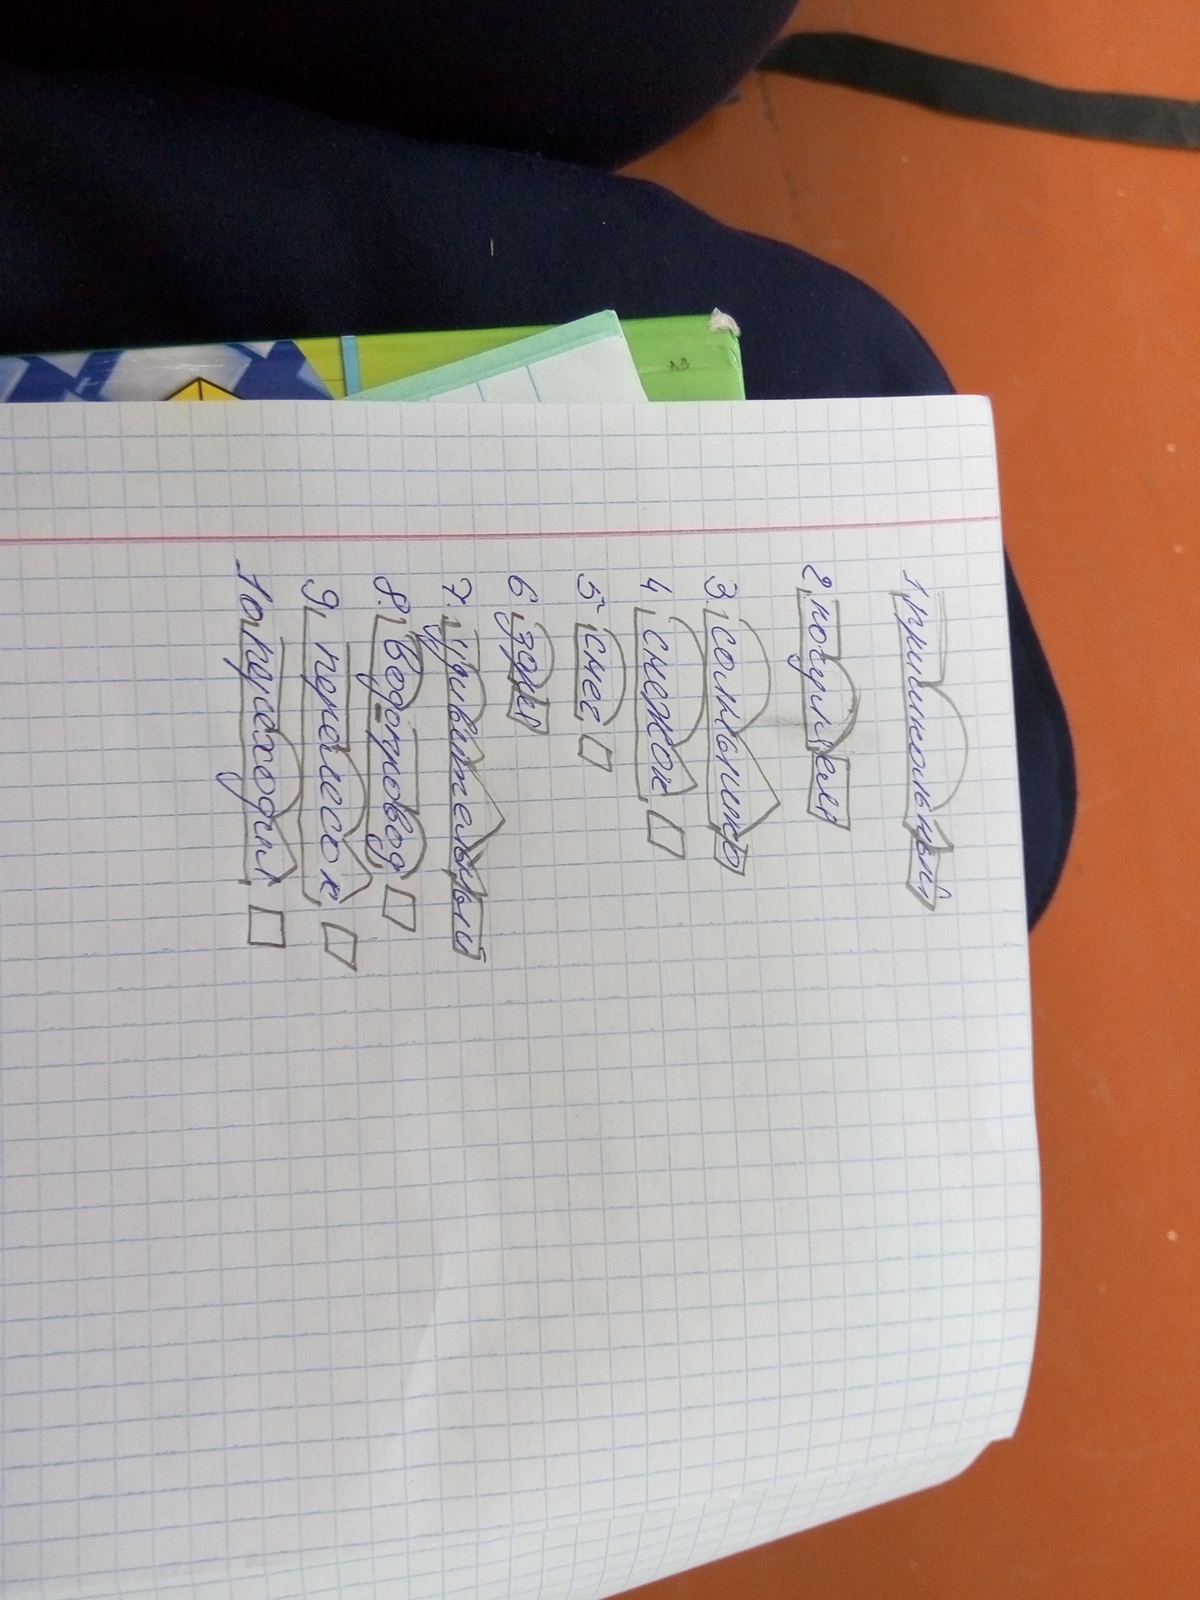 1. пришкольный
2. погулял
3. солнышко
4. снежок
5. снег
6. зори
7. удивительный
8. водопровод
9. перелесок
10 приходил